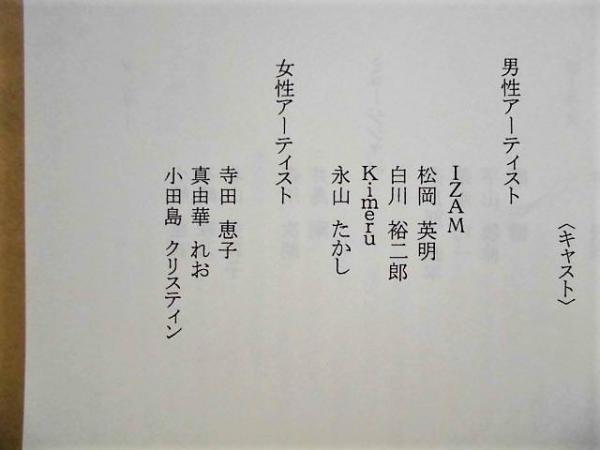 〈キャスト〉
男性アーティスト
IZAM
松岡 英明
白川 裕二郎
Kimeru
永山 たかし
女性アーティスト
寺田 恵子
真由華 れお
小田島 クリスティン